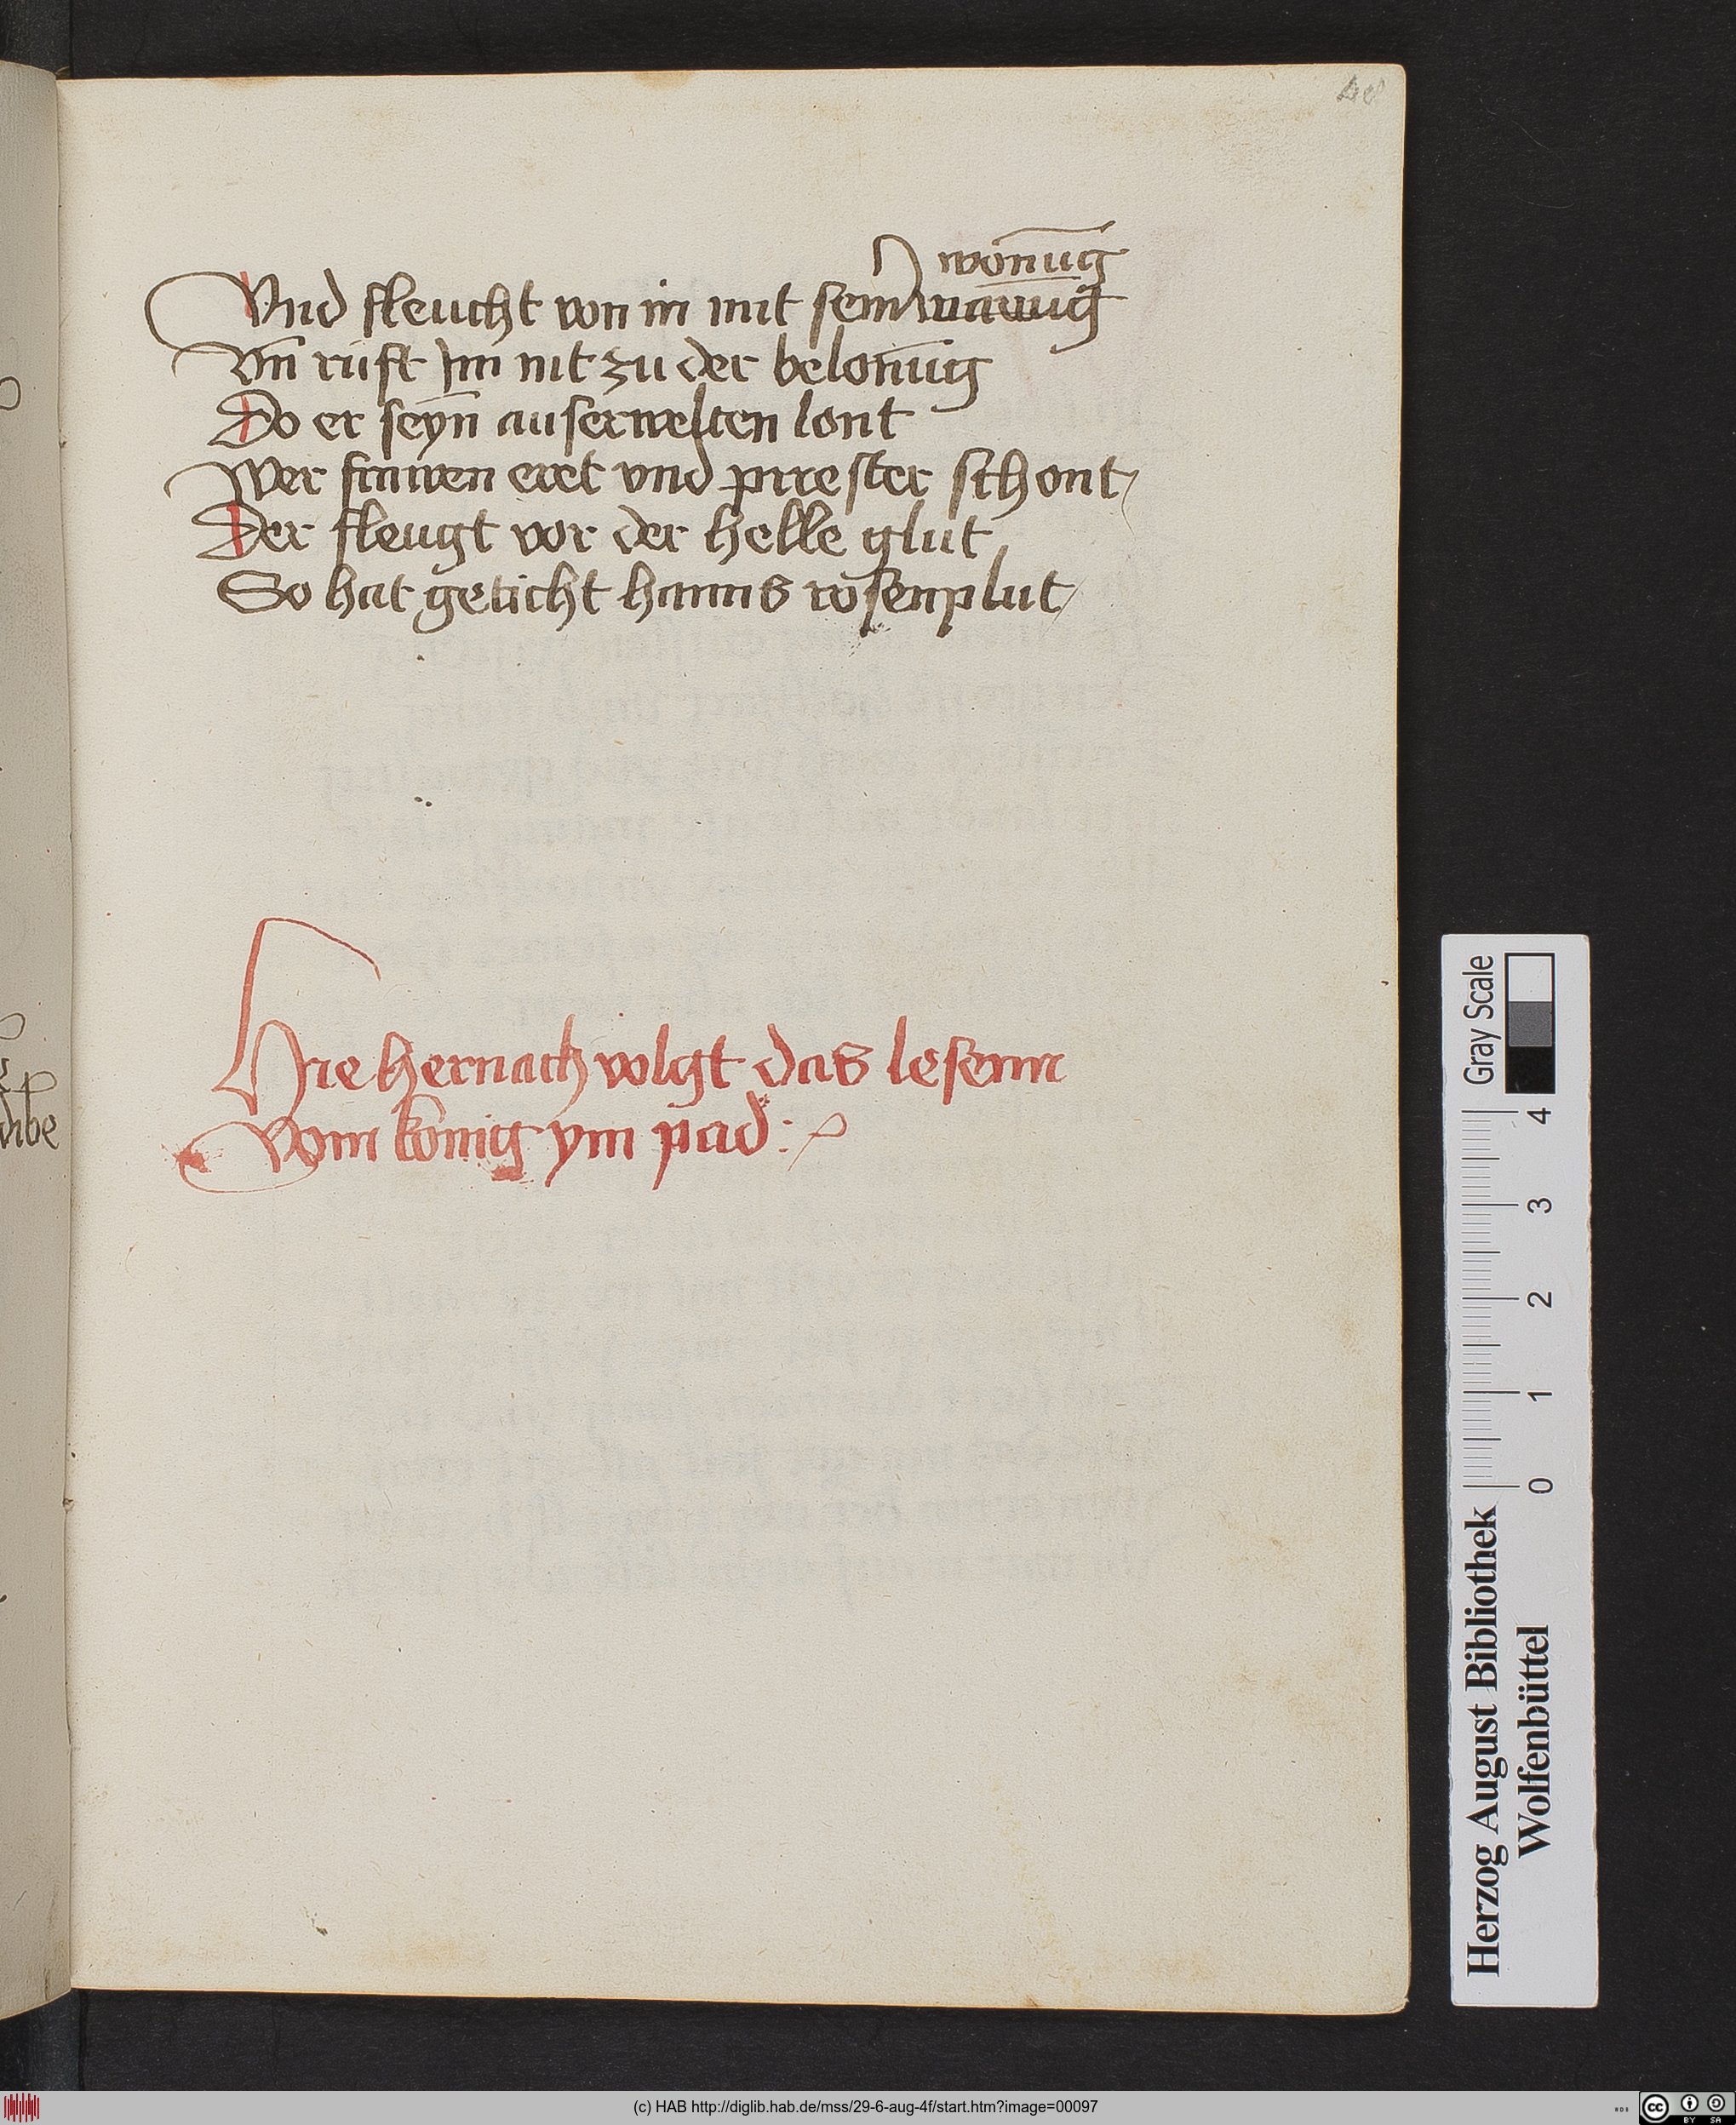 48
wonūg
Vnd fleucht von im mit sein
Vn̄ rüft Im nit zu der belonūg
Do er seyn̄ auserwelten lont
Wer frawen eret vnd prrester schont/
Der fleugt vor der helle glut
So hat geticht hanns rosenplut/
Hie hernach volgt das lesenn
Vom konig ym pad :
Gray Scale
0 1 2 3 4
Herzog August Bibliothek
Wolfenbüttel
(c) HAB http://diglib.hab.de/mss/29-6-aug-4f/start.htm?image=00097
CC BY SA